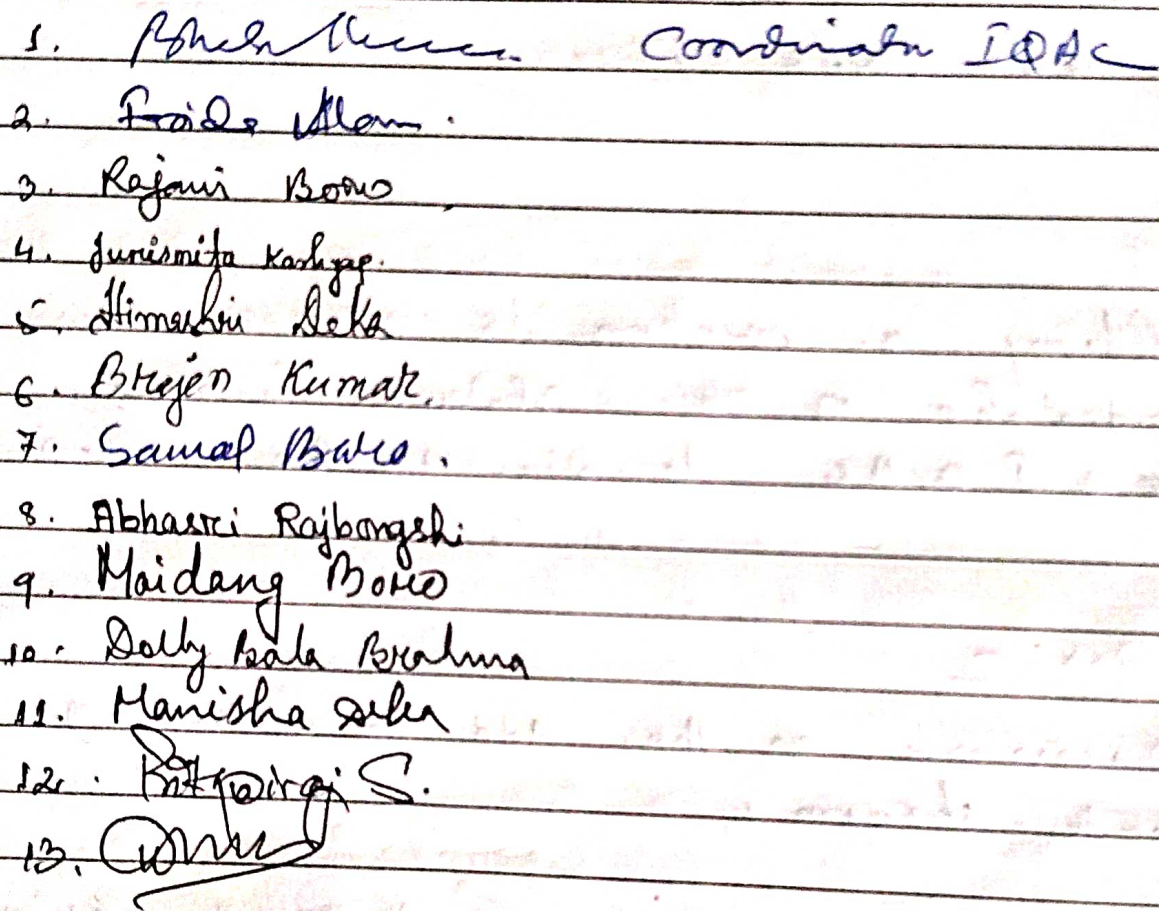 1. Coordinator IQAC
2. Alom.
3. Rajani Boro,
4. Junismita Kashyap.
5. Himashri Deka
6. Brajen Kumar.
7. Boro.
8. Abhasri Rajbongshi
9. Maidang Boro
10. Dolly Bala Brahma
11. Manisha Deka
12. S.
13.